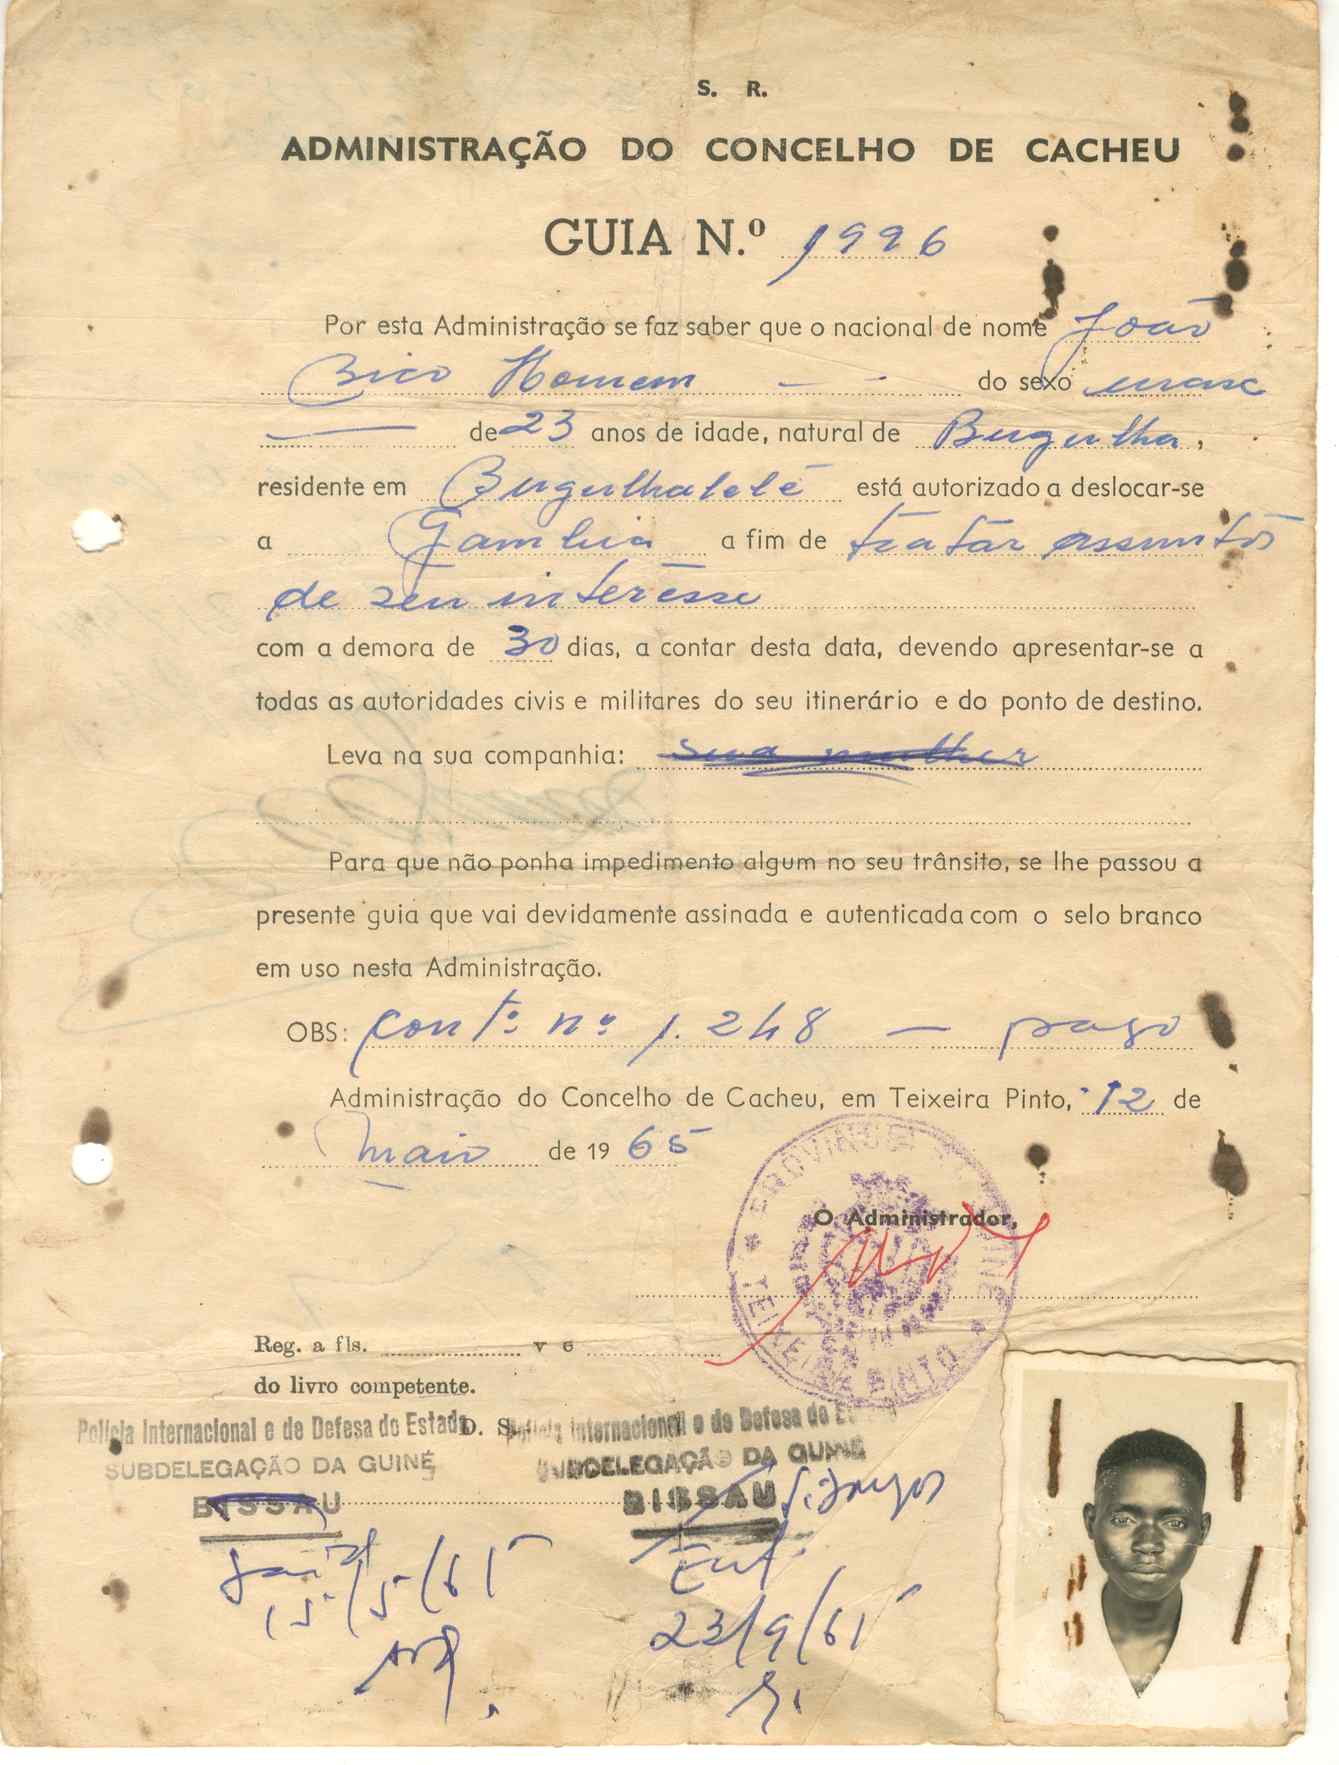 S. R.
ADMINISTRAÇÃO DO CONCELHO DE CACHEU
GUIA N.º 1996
Por esta Administração se faz saber que o nacional de nome João
Bico Homem do sexo masc
de 23 anos de idade, natural de Bugulha,
residente em está autorizado a deslocar-se
a Gambia a fim de tratar assuntos
de seu interêsse
com a demora de 30 dias, a contar desta data, devendo apresentar-se a
todas as autoridades civis e militares do seu itinerário e do ponto de destino.
Leva na sua companhia: sua mulher
Para que não ponha impedimento algum no seu trânsito, se lhe passou a
presente guia que vai devidamente assinada e autenticada com o selo branco
em uso nesta Administração.
OBS: Contº nº 1.248 — pago
Administração do Concelho de Cacheu, em Teixeira Pinto, 12 de
Maio de 1965
PROVINCIA DA GUINÉ * TEIXEIRA PINTO *
O Administrador,
Reg. a fls. v e
do livro competente.
Polícia Internacional e de Defesa do Estado D. S. Polícia Internacional e de Defesa do Estado
SUBDELEGAÇÃO DA GUINÉ SUBDELEGAÇÃO DA GUINÉ
BISSAU BISSAU S. Domingos
15/5/65 Ent
23/9/65